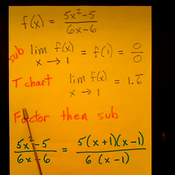 f(x) = 5x²-5 / 6x-6
sub lim x→1 f(x) = f(1) = 0/0
T chart lim x→1 f(x) = 1.6
Factor then sub
5x²-5 / 6x-6 = 5(x+1)(x-1) / 6(x-1)